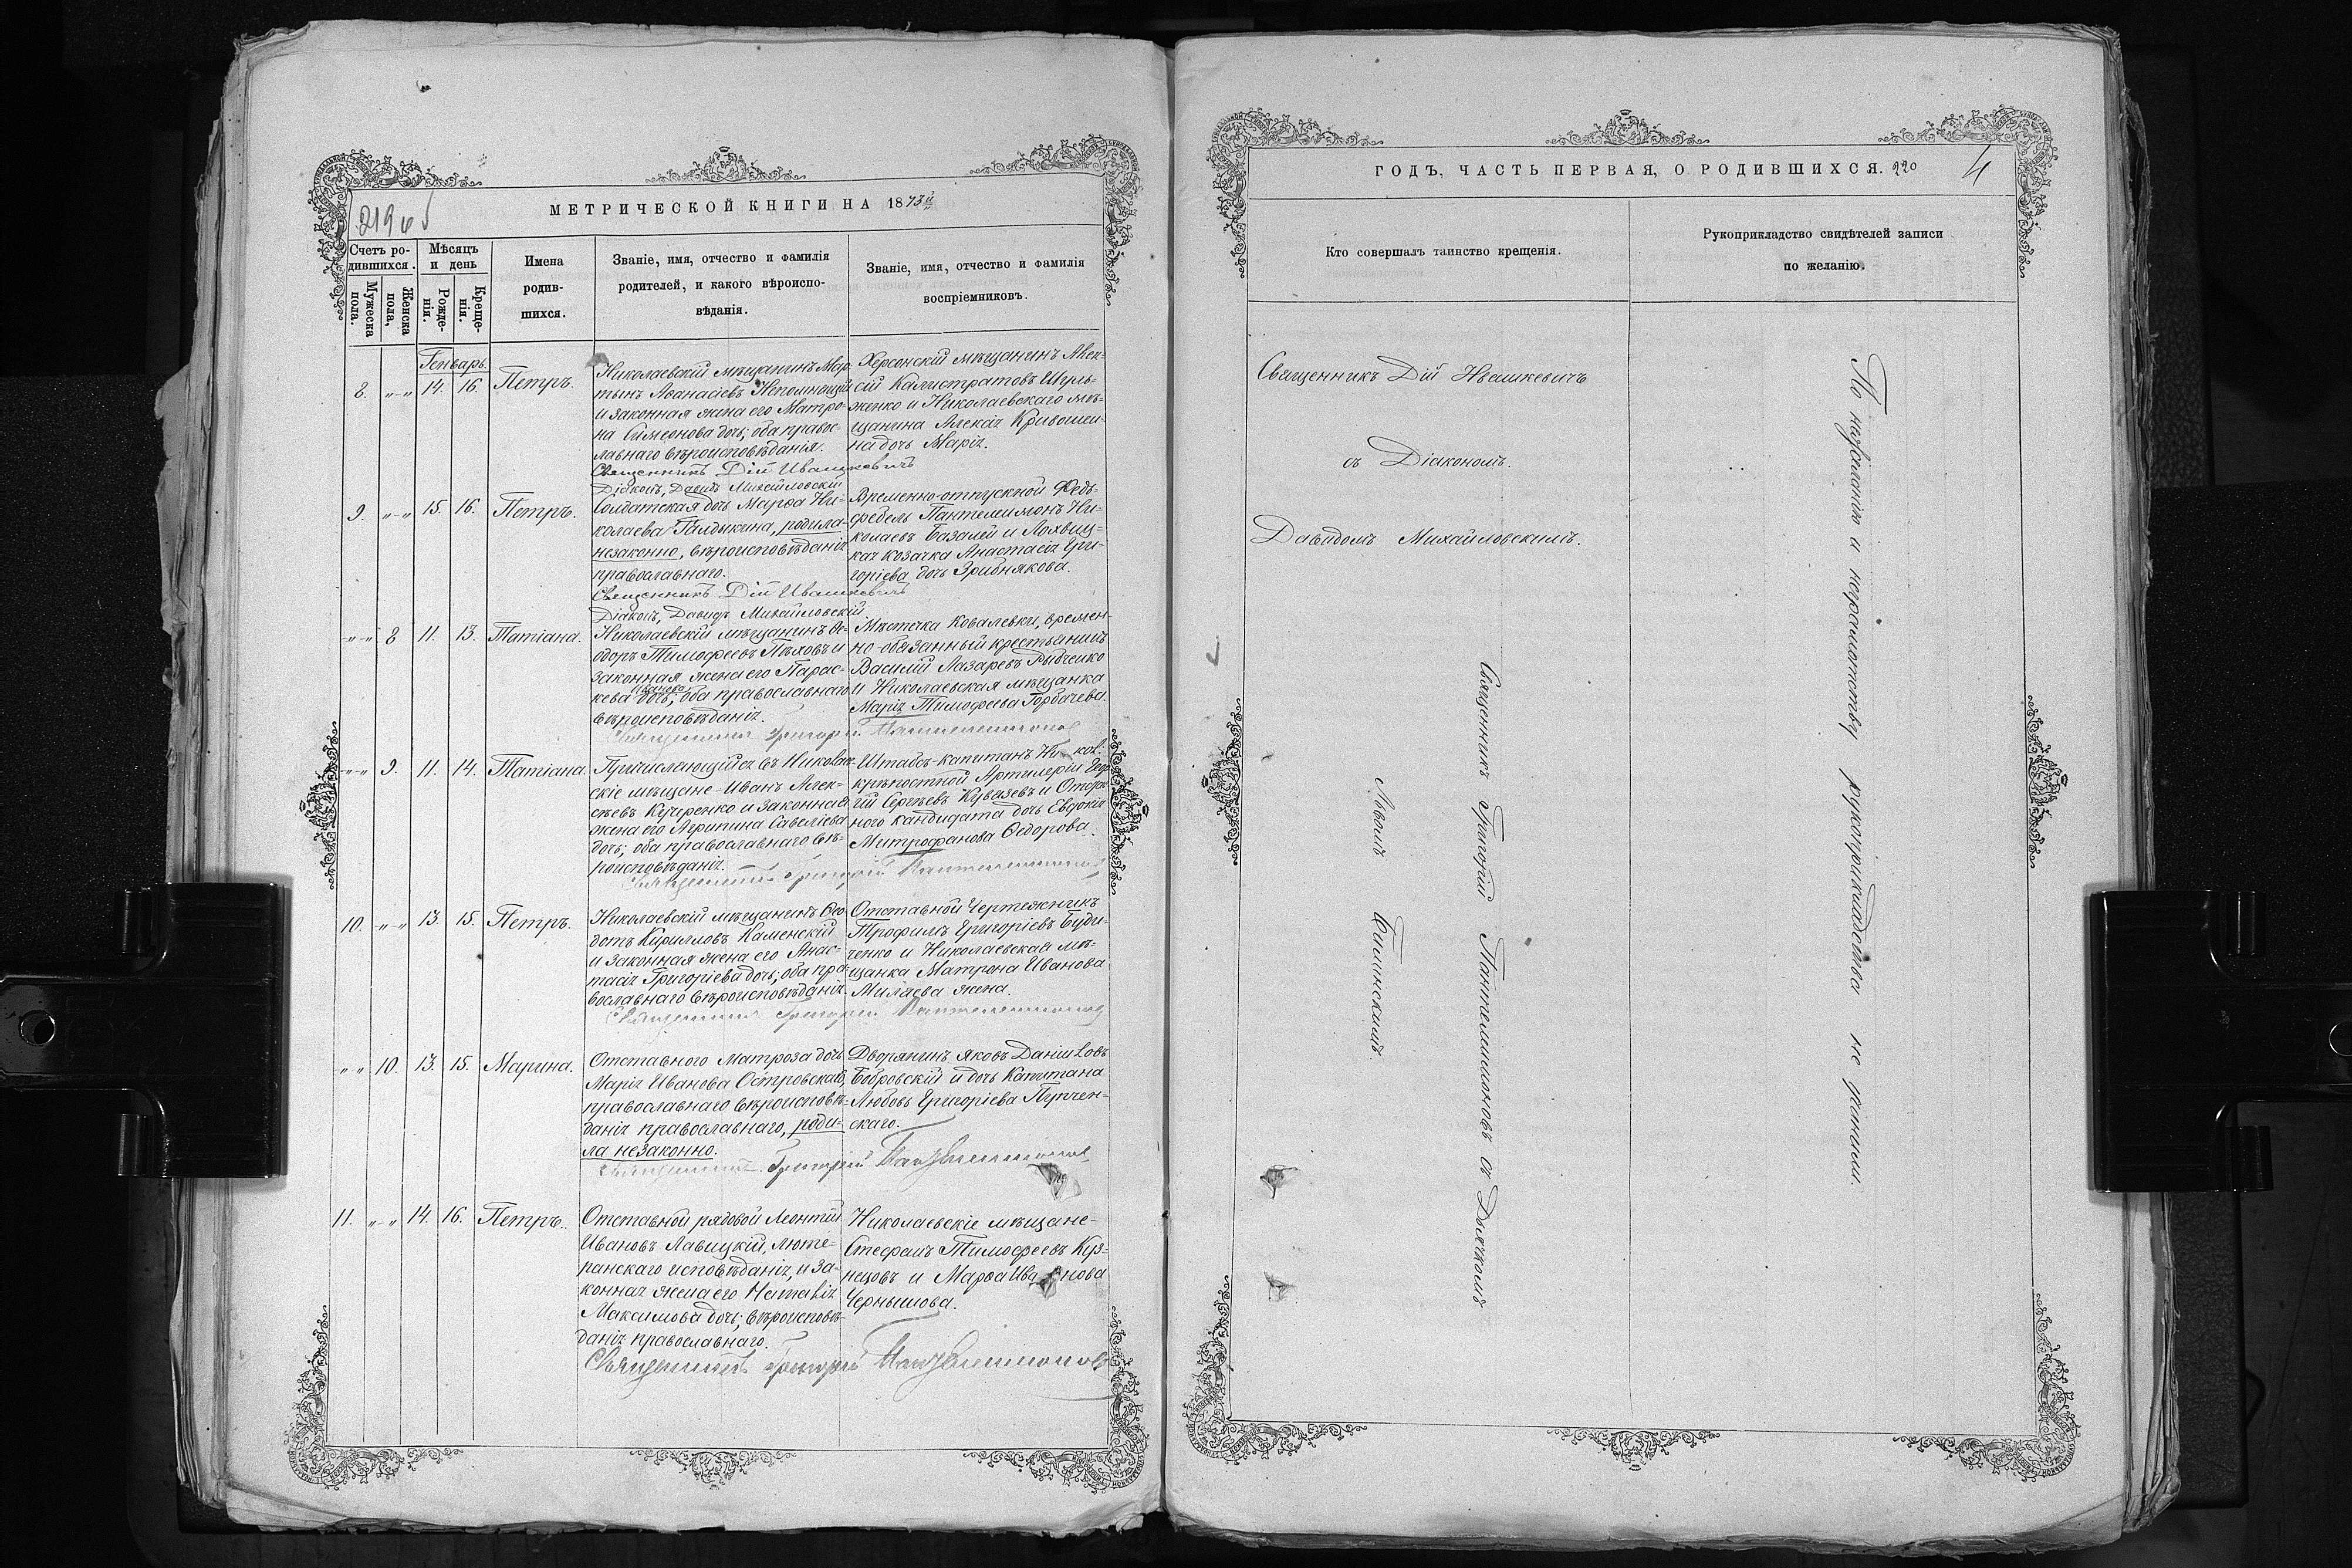 МЕТРИЧЕСКОЙ КНИГИ НА 1873й
Счетъ ро-
дившихся.
Мужеска пола.
Женска пола.
Мѣсяцъ и день
Рожденія.
Крещенія.
Имена
родив-
шихся.
Званіе, имя, отчество и фамилія
родителей, и какого вѣроиспо-
вѣданія.
Званіе, имя, отчество и фамилія
воспріемниковъ.
Генварь.
8. „-„ 14. 16. Петръ.
Николаевскій мѣщанинъ Мар-
тынъ Аѳанасіевъ Непомнящій
и законная жена его Матро-
на Симеонова дочь; оба правос-
лавнаго вѣроисповѣданія.
Священникъ Дій Ивашкевичъ
Діаконъ, Давидъ Михайловскій
Херсонскій мѣщанинъ Алек-
сій Калистратовъ
и Николаевскаго мѣ-
щанина Алексія Кривошеи-
на дочь Марія.
9. „-„ 15. 16. Петръ.
Солдатская дочь Марѳа Ни-
колаева Галдыкина, родила
незаконно, вѣроисповѣданія
православнаго.
Священникъ Дій Ивашкевичъ
Діаконъ, Давидъ Михайловскій
Временно-отпускной Фельд-
фебель Пантелеимонъ Ни-
колаевъ Базалей и Лохвиц-
кая козачка Анастасія Гри-
горіева дочь Зрибнякова.
„-„ 8 11. 13. Татіана.
Николаевскій мѣщанинъ Ѳе-
одоръ Тимофеевъ Пѣховъ и
законная жена его Парас-
кева Иванова дочь; оба православнаго
вѣроисповѣданія.
Священникъ Григорій Пантелеимоновъ
Мѣстечка Ковалевки, времен-
но обязанный крестьянинъ
Василій Лазаревъ Рыбченко
и Николаевская мѣщанка
Марія Тимофеева Горбачева.
„-„ 9. 11. 14. Татіана.
Причисляющійся въ Николаев-
скіе мѣщане Иванъ Алек-
сѣевъ Кучеренко и законная
жена его Агрипина Савеліева
дочь; оба православнаго вѣ-
роисповѣданія.
Священникъ Григорій Пантелеимоновъ
Штабсъ-капитанъ
крѣпостной Артилеріи
Сергѣевъ и
кандидата дочь Евдокія
Митрофанова Ѳедорова.
10. „-„ 13. 15. Петръ.
Николаевскій мѣщанинъ Ѳео-
дотъ Кирилловъ Каменскій
и законная жена его Анас-
тасія Григоріева дочь; оба пра-
вославнаго вѣроисповѣданія.
Священникъ Григорій Пантелеимоновъ
Отставной Чертежникъ
Трофимъ Григоріевъ Буди-
ченко и Николаевская мѣ-
щанка Матрона Иванова
Миляева жена.
„ „ 10. 13. 15. Марина.
Отставного матроза дочь
Марія Иванова Островская,
православнаго вѣроисповѣ-
данія православнаго, роди-
ла незаконно.
Священникъ Григорій Пантелеимоновъ
Дворянинъ Яковъ Даниловъ
Бобровскій и дочь Капитана
Любовь Григоріева Пупчен-
скаго.
11. „-„ 14. 16. Петръ.
Отставной рядовой Леонтій
Ивановъ Лавицкій, люте-
ранскаго исповѣданія, и за-
конная жена его Наталія
Максимова дочь; вѣроисповѣ-
данія православнаго.
Священникъ Григорій Пантелеимоновъ
Николаевскіе мѣщане-
Стефанъ Тимофеевъ Куз-
нецовъ и Марѳа Иванова
Чернышова.
ГОДЪ, ЧАСТЬ ПЕРВАЯ, О РОДИВШИХСЯ. 220
4
Кто совершалъ таинство крещенія.
Рукоприкладство свидѣтелей записи
по желанію.
Священникъ Дій Ивашкевичъ
съ Діакономъ.
Давидомъ Михайловскимъ.
Священникъ Григорій Пантелеимоновъ съ Дьячкомъ
Львомъ Бишинскимъ.
По нахожденію и неграмотству рукоприкладства не учинили.